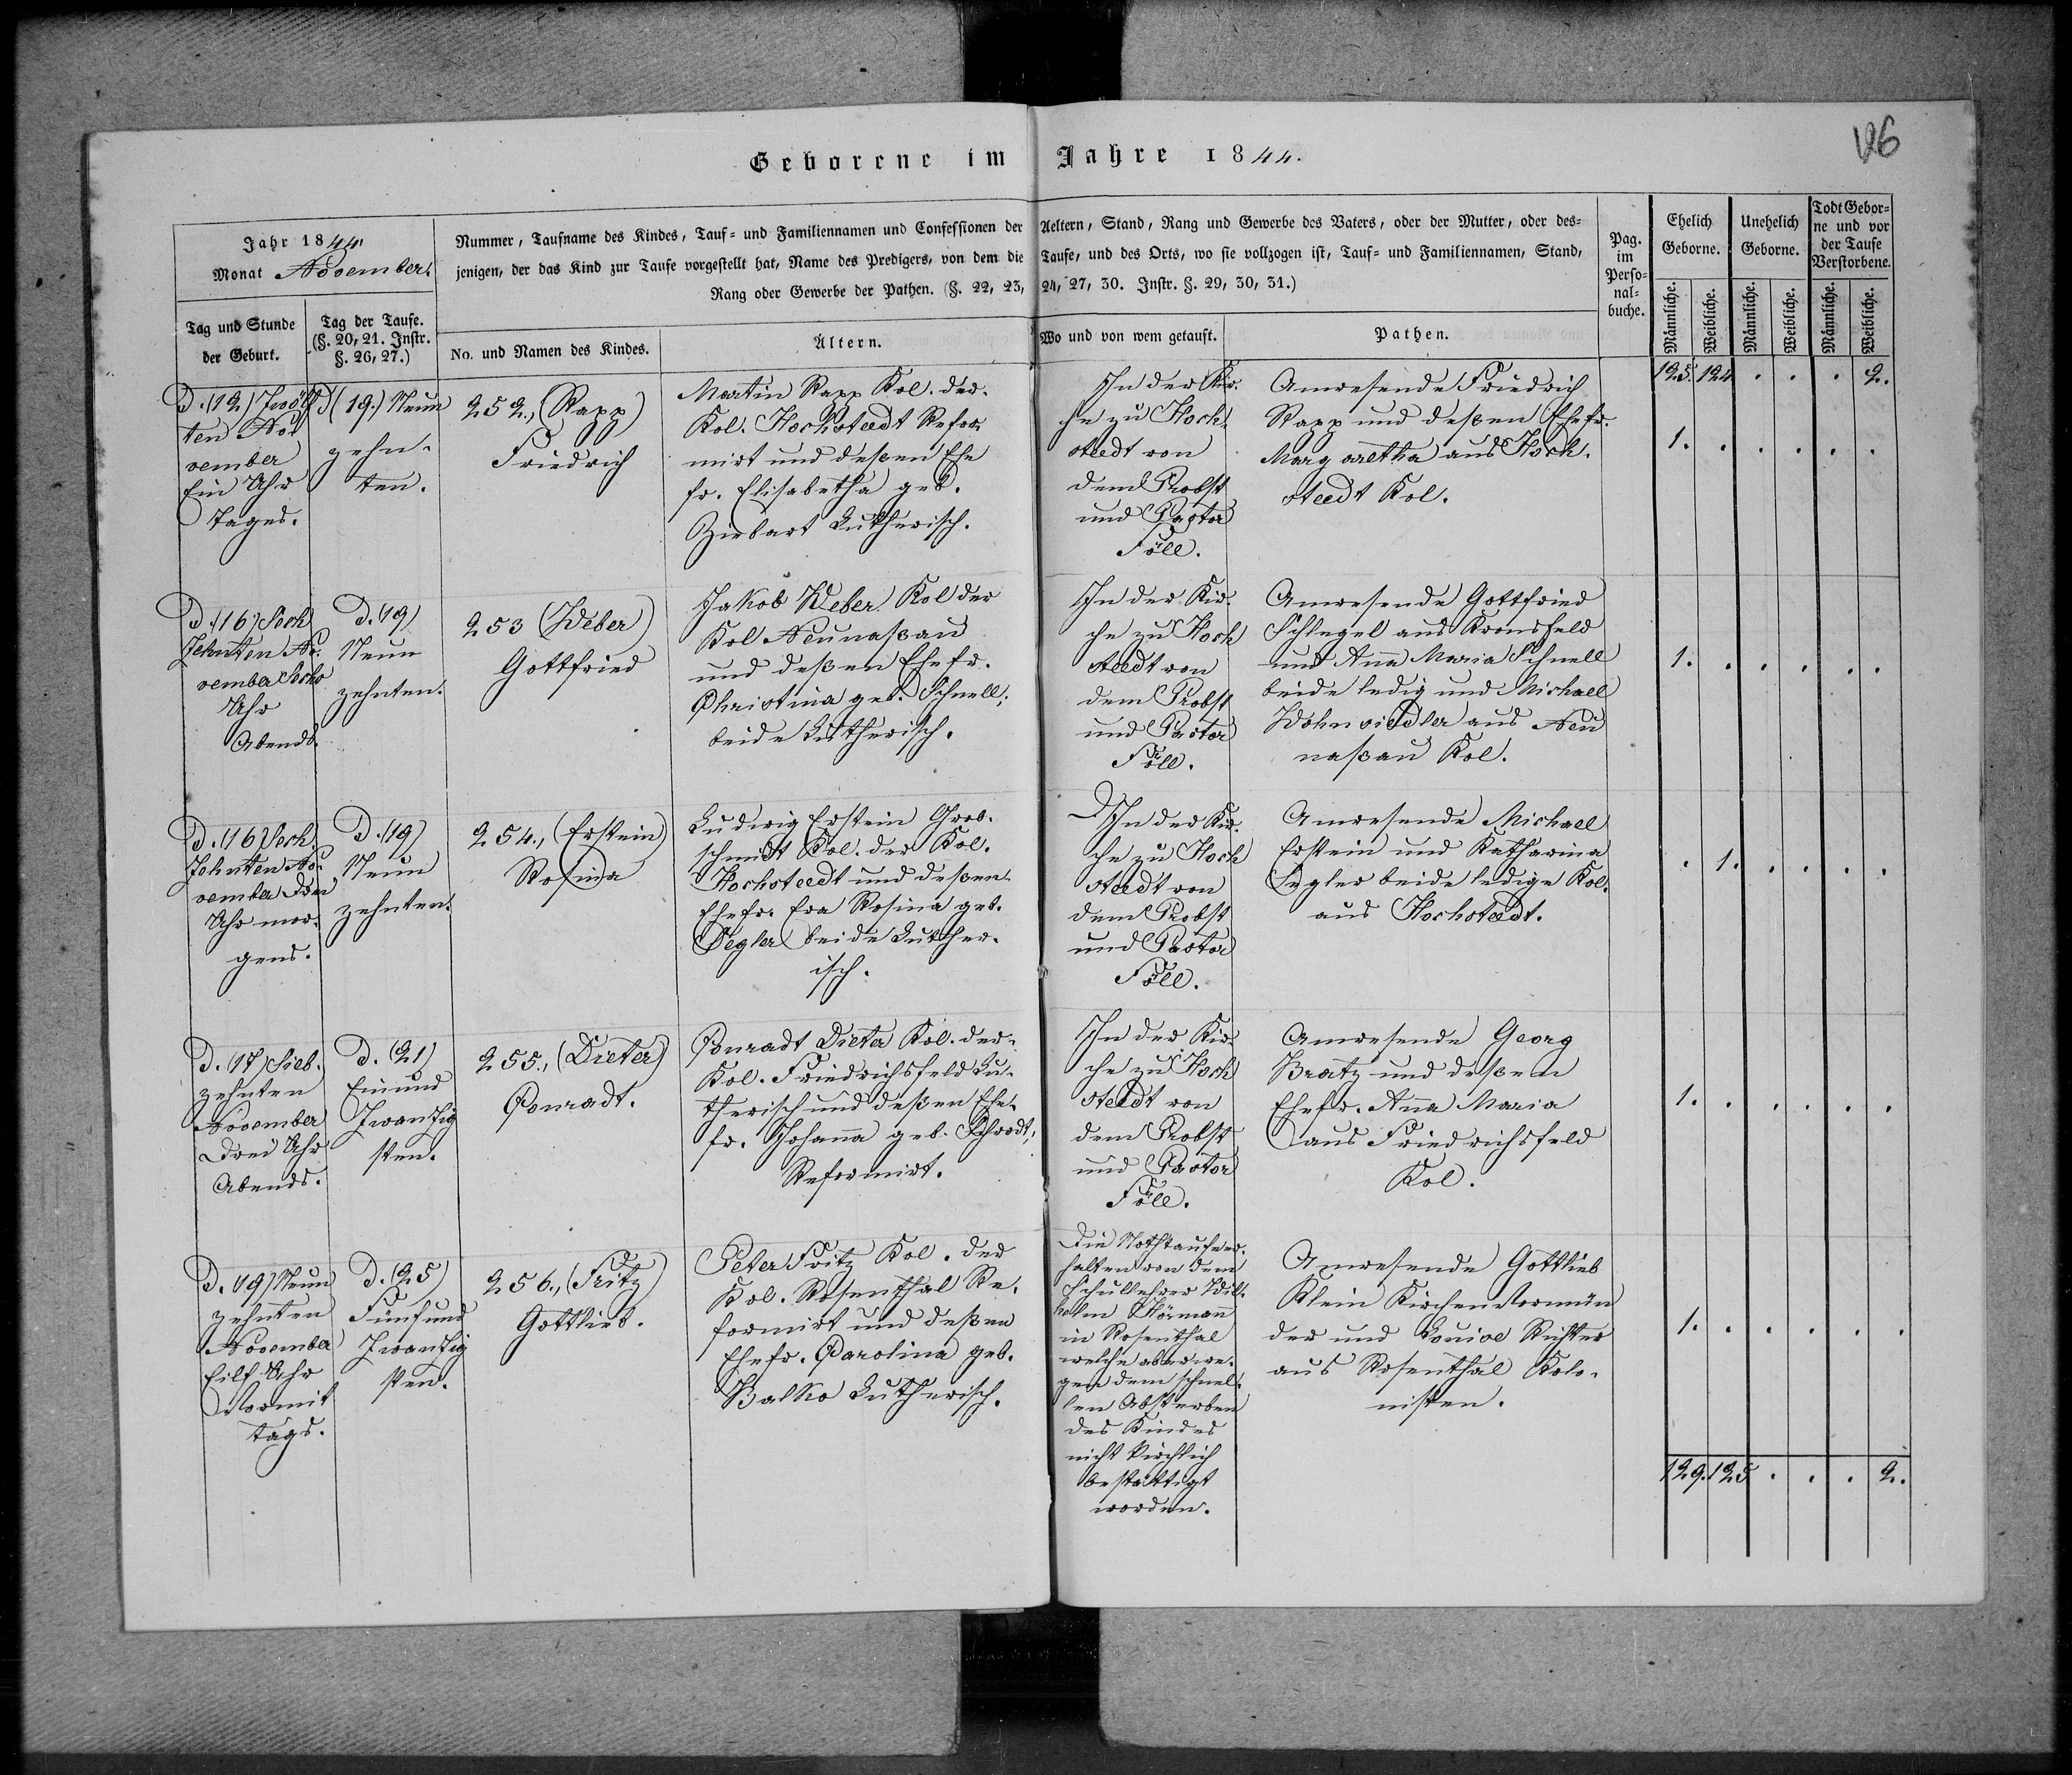 126
Geborene im Jahre 1844.
Jahr 1844.
Monat November.
Nummer, Taufname des Kindes, Tauf- und Familiennamen und Confessionen der Aeltern, Stand, Rang und Gewerbe des Vaters, oder der Mutter, oder des-
jenigen, der das Kind zur Taufe vorgestellt hat, Name des Predigers, von dem die Taufe, und des Orts, wo sie vollzogen ist, Tauf- und Familiennamen, Stand,
Rang oder Gewerbe der Pathen. (§. 22, 23, 24, 27, 30. Instr. §. 29, 30, 31.)
Pag.
im
Perso-
nal-
buche.
Ehelich
Geborne.
Unehelich
Geborne.
Todt Gebor-
ne und vor
der Taufe
Verstorbene.
Tag und Stunde
der Geburt.
Tag der Taufe.
(§. 20, 21. Instr.
§. 26, 27.)
No. und Namen des Kindes.
Ältern.
Wo und von wem getauft.
Pathen.
Männliche.
Weibliche.
Männliche.
Weibliche.
Männliche.
Weibliche.
125. 124 . . . 2.
D. (12) Zwölf
ten No-
vember
Ein Uhr
Tages.
D (19.) Neun
zehn-
ten.
252., (Rapp)
Friedrich
Martin Rapp Kol. der.
Kol. Hochstaedt Refor-
mirt und deßen Ehe
fr. Elisabetha geb.
Ziebart Lutherisch.
In der Kir-
he zu Hoch-
staedt von
dem Probst
und Pastor
Föll.
Anwesende Friedrich
Rapp und deßen Ehefr.
Margaretha aus Hoch-
staedt Kol.
1. . . . . .
D. (16) Sech
zehnten No-
vember Sechs
Uhr
Abends.
D. (19)
Neun
zehnten.
253 (Weber)
Gottfried
Jakob Weber Kol der
Kol Neunaßau
und deßen Ehefr.
Christina geb. Schnell;
beide Lutherisch.
In der Kir-
che zu Hoch
staedt von
dem Probst
und Pastor
Föll.
Anwesende Gottfried
Schlegel aus Kronsfeld
und Ana Maria Schnell
beide ledig und Michael
Wohnsiedler aus Neu
naßau Kol.
1. . . . . .
D. (16) Sech-
zehnten No-
vember Drei
Uhr mor-
gens.
D. (19)
Neun
zehnten.
254., (Erstein)
Rosina
Ludwig Erstein Grob-
schmidt Kol. der Kol.
Hochstaedt und deßen
Ehefr. Eva Rosina geb.
Segler beide Luther-
isch.
In der Kir-
che zu Hoch
staedt von
dem Probst
und Pastor
Föll.
Anwesende Michael
Erstein und Katharina
Segler beide ledige Kol.
aus Hochstaedt.
. 1. . . . .
D. (17) Sieb-
zehnten
November
Drei Uhr
Abends.
D. (21)
Einund
Zwanzig
sten.
255., (Dieter)
Conradt.
Conradt Dieter Kol. der
Kol. Friedrichsfeld Lu-
therisch und deßen Ehe-
fr. Johana geb. Schrodt,
Reformirt.
In der Kir-
che zu Hoch
staedt von
dem Probst
und Pastor
Föll.
Anwesende Georg
Bratz und deßen
Ehefr. Ana Maria
aus Friedrichsfeld
Kol.
1. . . . . .
D. (19) Neun
zehnten
November
Eilf Uhr
Vormit
tags.
D. (25)
Fünfund
Zwanzig
sten.
256., (Fritz)
Gottlieb.
Peter Fritz Kol. der
Kol. Rosenthal Re-
formirt und deßen
Ehefr. Carolina geb.
Balko Lutherisch.
Die Nothtaufe er-
halten von dem
Schullehrer Wil-
helm
in Rosenthal
welche aber we-
gen dem schnel-
len Absterben
des Kindes
nicht kirchlich
bestättigt
worden.
Anwesende Gottlieb
Klein Kirchen Vormün
der und Louise Richter
aus Rosenthal Kolo-
nisten.
1. . . . . .
129. 125 . . . 2.